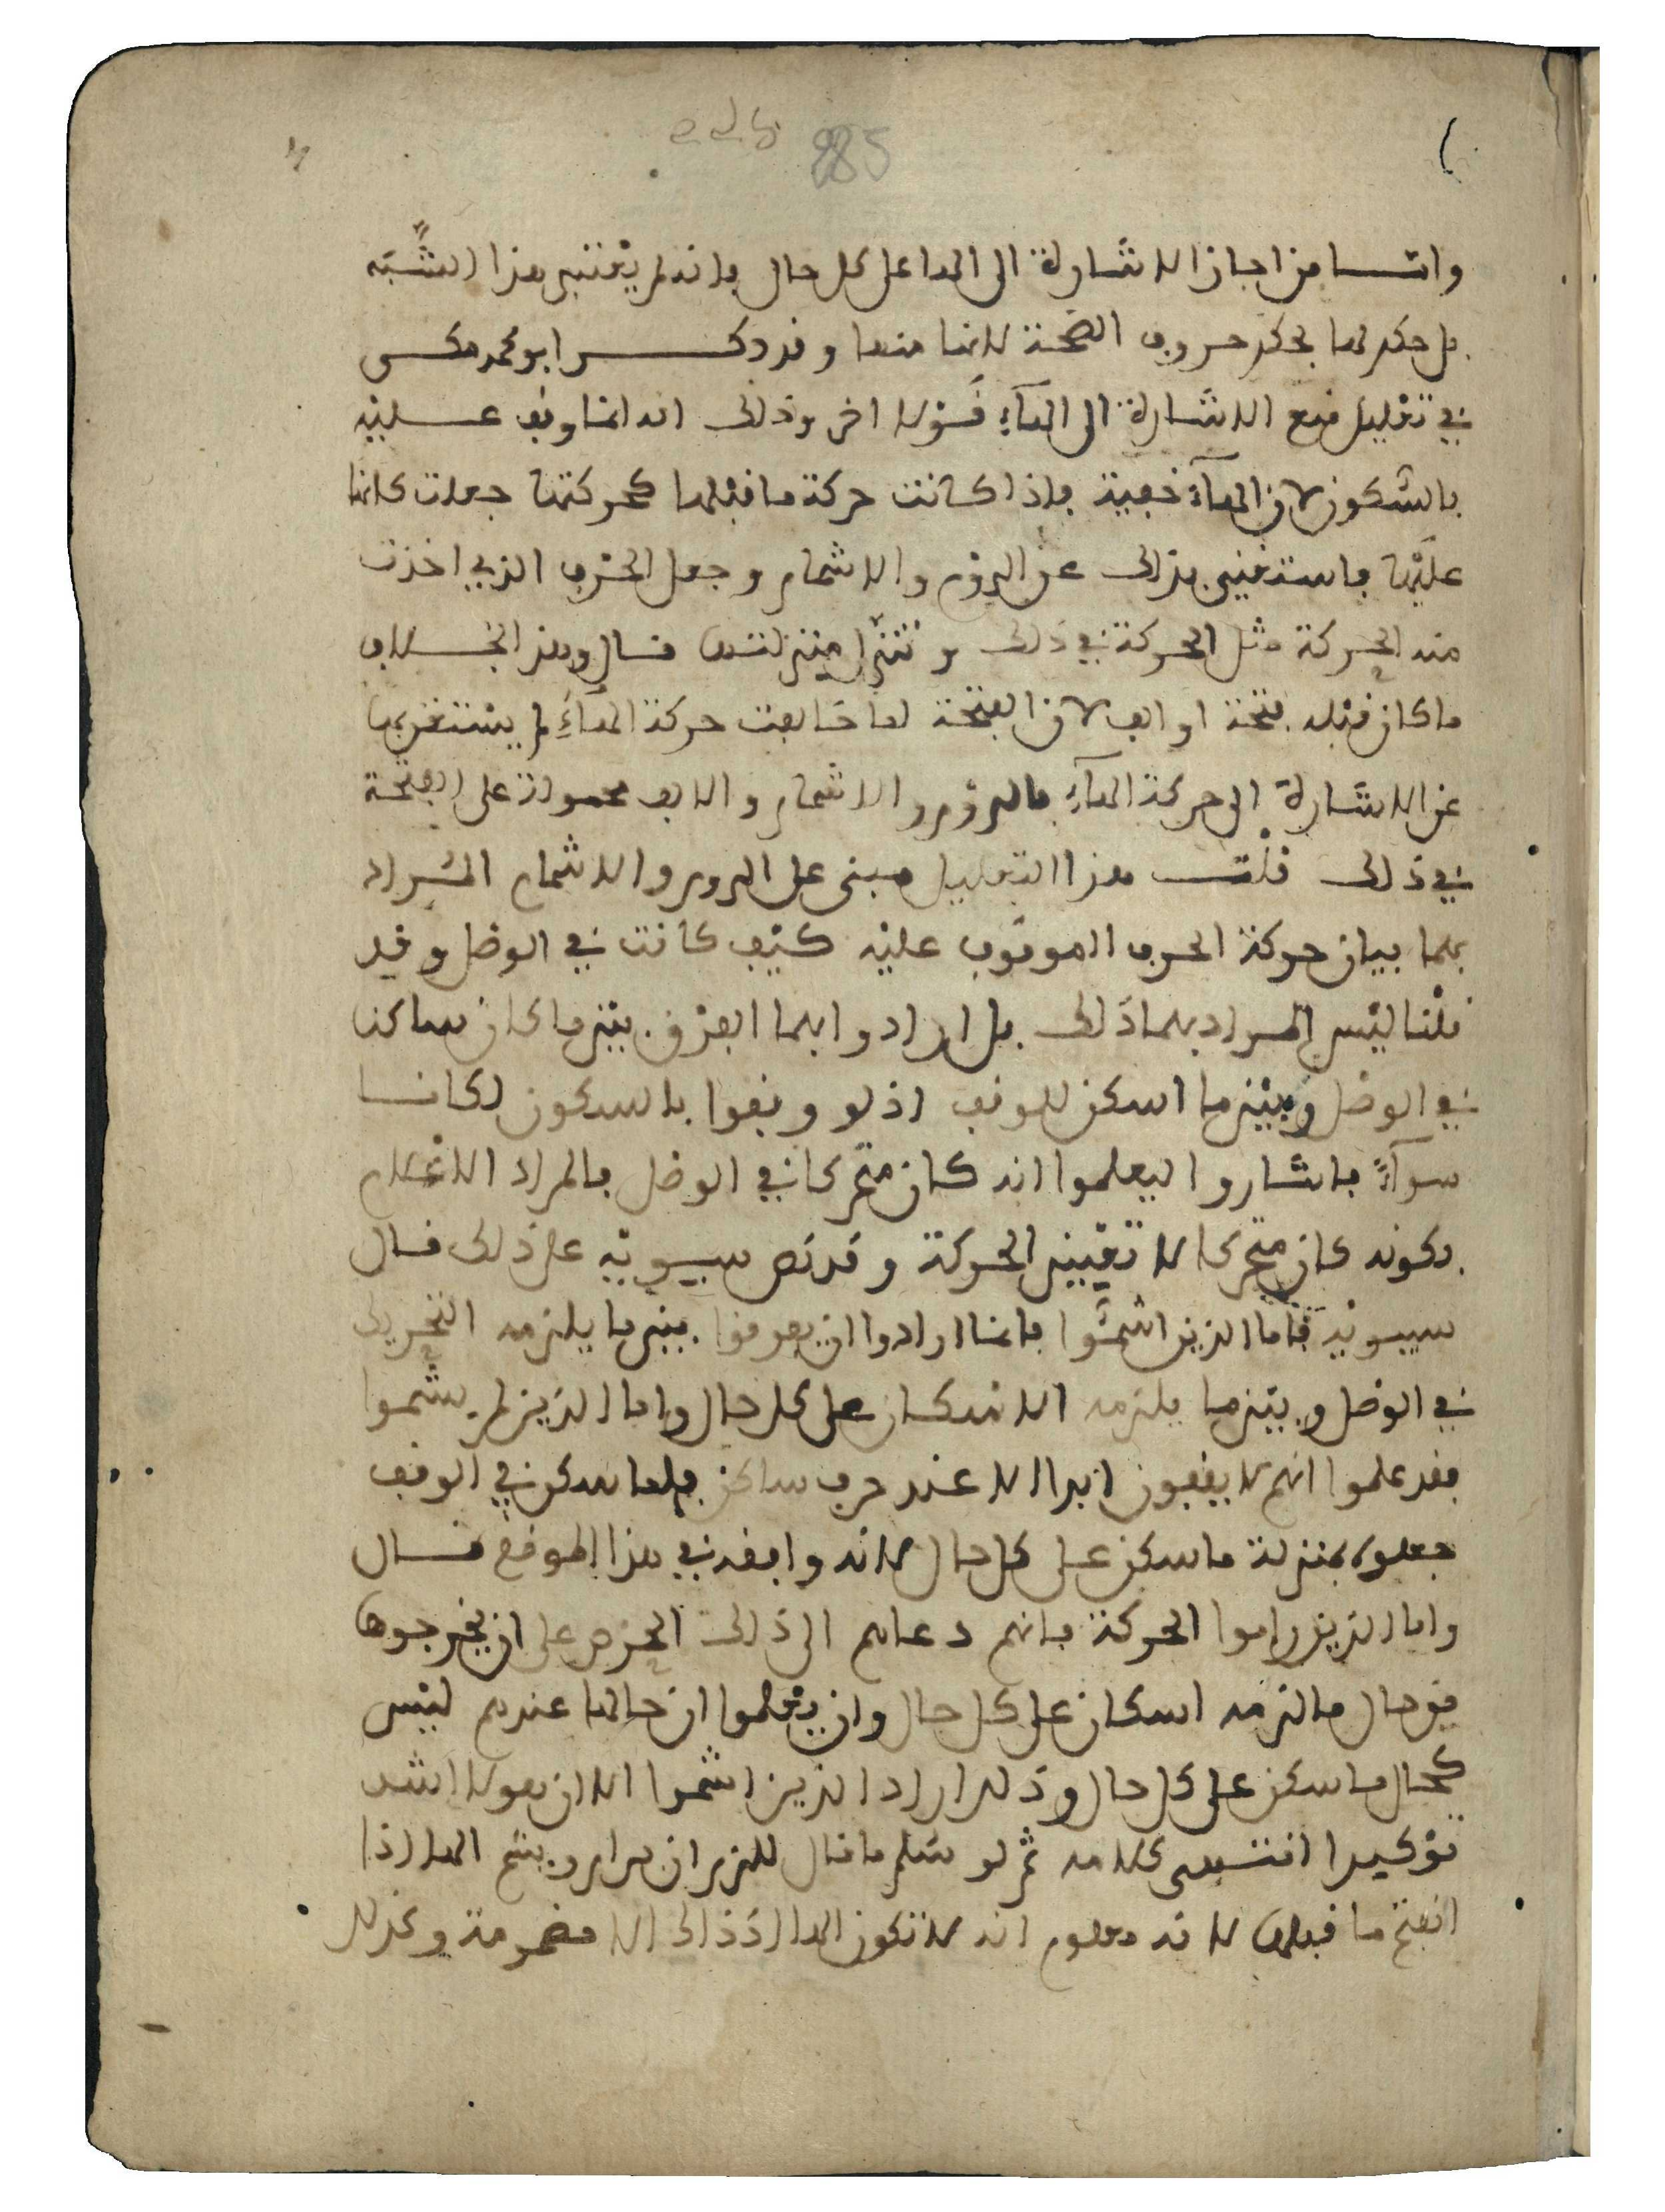 885
وامـــا من اجاز الاشارة الى الها على كل حال فانه لم يعتبر هذا الشبه
بل حكم لها بحكم حروف الصحة لانها منها وقد ذكــــر ابو محمد مكى
في تعليل منع الاشارة الى الهآء قولا اخر وذلك انه انما وقف عــليه
بالسكون لان الهآء خفية فاذا كانت حركة ما قبلها كحركتها جعلت كانها
عليها فاستغنى بذلك عن الروم والاشمام وجعل الحرف الذي اخذت
منه الحركة مثل الحركة في ذلك وتنزل منزلتها قال وهذا بخــلاف
ما كان قبله فتحة او الف لان الفتحة لما خالفت حركة الهآء لم يستغن بها
عن الاشارة الى حركة الهآء بالروم والاشمام والالف محمولة على الفتحة
في ذلك قلــت هذا التعليل مبنى على الروم والاشمام المراد
بهما بيان حركة الحرف الموقوف عليه كيف كانت في الوصل وقد
قلنا ليس المراد بهما ذلك بل ارادوا بهما الفرق بين ما كان ساكنا
في الوصل وبين ما اسكن للوقف اذ لو وقفوا بالسكون لكانــا
سوآءً فاشاروا ليعلموا انه كان متحركا في الوصل فالمراد الاعلام
بكونه كان متحركا لا تعيين الحركة وقد نص سيبويه على ذلك قــال
سيبويه فاما الذين اشموا فانما ارادوا ان يفرقوا بين ما يلزمه التحريك
في الوصل وبين ما يلزمه الاسكان على كل حال واما الذين لم يشموا
فقد علموا انهم لا يقفون ابدا الا عند حرف ساكن فلما سكن في الوقف
جعلوه بمنزلة ما سكن على كل حال لانه وافقه في هذا الموضع قــال
واما الذين راموا الحركة فانهم دعاهم الى ذلك الحرص على ان يخرجوها
من حال ما لزمه اسكان على كل حال وان يعلموا ان حالها عندهم ليس
كحال ما سكن على كل حال وذلك اراد الذين اشموا الا ان هولا اشد
توكيدا انتهى كلامه ثم لو سلم ما قال للزم ان يرام ويشم الها اذا
انفتح ما قبلها لانه معلوم انه لا تكون الها اذ ذاك الا مضمومة وكذلك